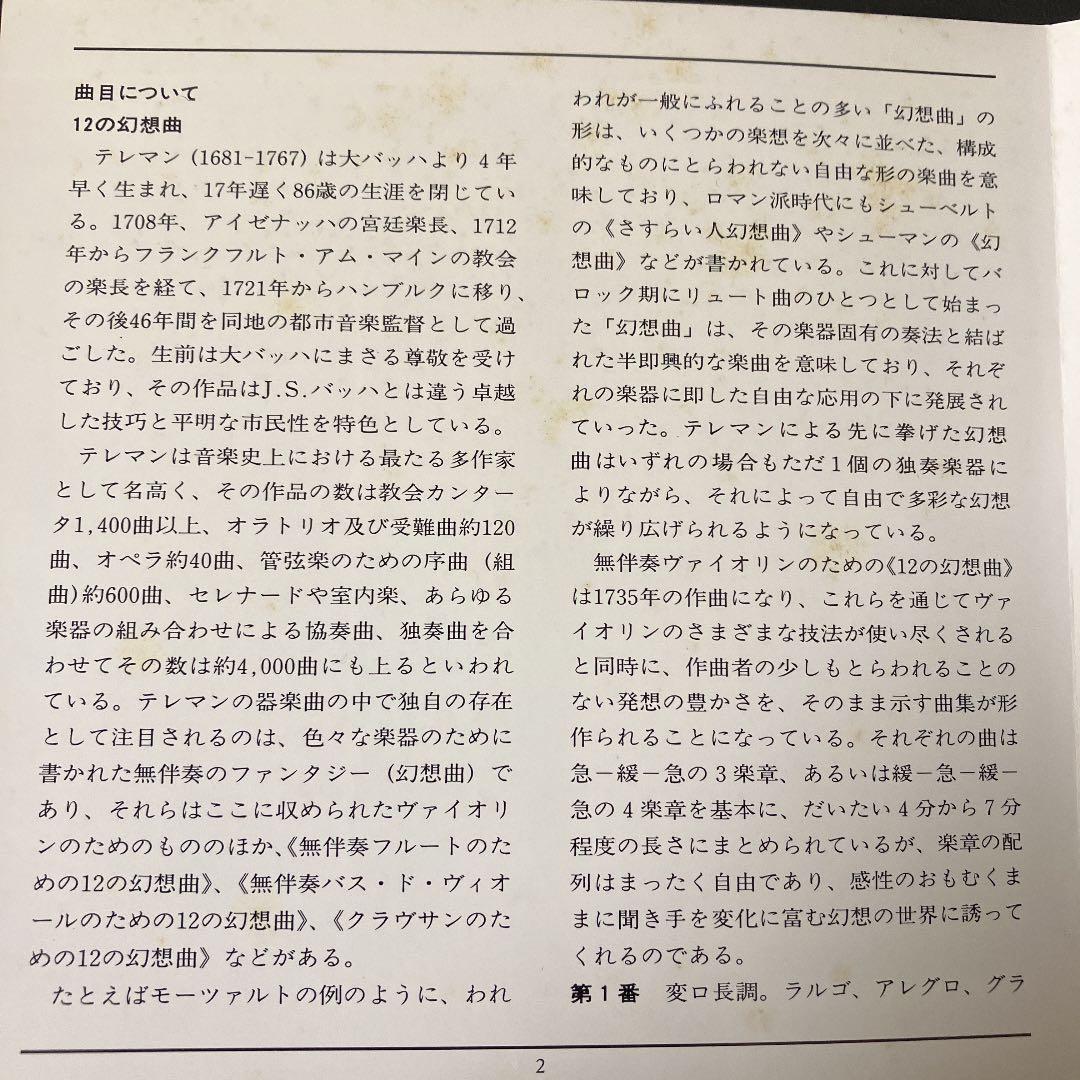 曲目について
12の幻想曲
テレマン (1681-1767) は大バッハより4年
早く生まれ、17年遅く86歳の生涯を閉じてい
る。1708年、アイゼナッハの宮廷楽長、1712
年からフランクフルト・アム・マインの教会
の楽長を経て、1721年からハンブルクに移り、
その後46年間を同地の都市音楽監督として過
ごした。生前は大バッハにまさる尊敬を受け
ており、その作品はJ.S.バッハとは違う卓越
した技巧と平明な市民性を特色としている。
テレマンは音楽史上における最たる多作家
として名高く、その作品の数は教会カンター
タ1,400曲以上、オラトリオ及び受難曲約120
曲、オペラ約40曲、管弦楽のための序曲 (組
曲)約600曲、セレナードや室内楽、あらゆる
楽器の組み合わせによる協奏曲、独奏曲を合
わせてその数は約4,000曲にも上るといわれ
ている。テレマンの器楽曲の中で独自の存在
として注目されるのは、色々な楽器のために
書かれた無伴奏のファンタジー (幻想曲) で
あり、それらはここに収められたヴァイオリ
ンのためのもののほか、《無伴奏フルートのた
めの12の幻想曲》、《無伴奏バス・ド・ヴィオ
ールのための12の幻想曲》、《クラヴサンのた
めの12の幻想曲》などがある。
たとえばモーツァルトの例のように、われ
われが一般にふれることの多い「幻想曲」の
形は、いくつかの楽想を次々に並べた、構成
的なものにとらわれない自由な形の楽曲を意
味しており、ロマン派時代にもシューベルト
の《さすらい人幻想曲》やシューマンの《幻
想曲》などが書かれている。これに対してバ
ロック期にリュート曲のひとつとして始まっ
た「幻想曲」は、その楽器固有の奏法と結ば
れた半即興的な楽曲を意味しており、それぞ
れの楽器に即した自由な応用の下に発展され
ていった。テレマンによる先に挙げた幻想
曲はいずれの場合もただ1個の独奏楽器に
よりながら、それによって自由で多彩な幻想
が繰り広げられるようになっている。
無伴奏ヴァイオリンのための《12の幻想曲》
は1735年の作曲になり、これらを通じてヴァ
イオリンのさまざまな技法が使い尽くされる
と同時に、作曲者の少しもとらわれることの
ない発想の豊かさを、そのまま示す曲集が形
作られることになっている。それぞれの曲は
急－緩－急の3楽章、あるいは緩－急－緩－
急の4楽章を基本に、だいたい4分から7分
程度の長さにまとめられているが、楽章の配
列はまったく自由であり、感性のおもむくま
まに聞き手を変化に富む幻想の世界に誘って
くれるのである。
第1番　変ロ長調。ラルゴ、アレグロ、グラ
2